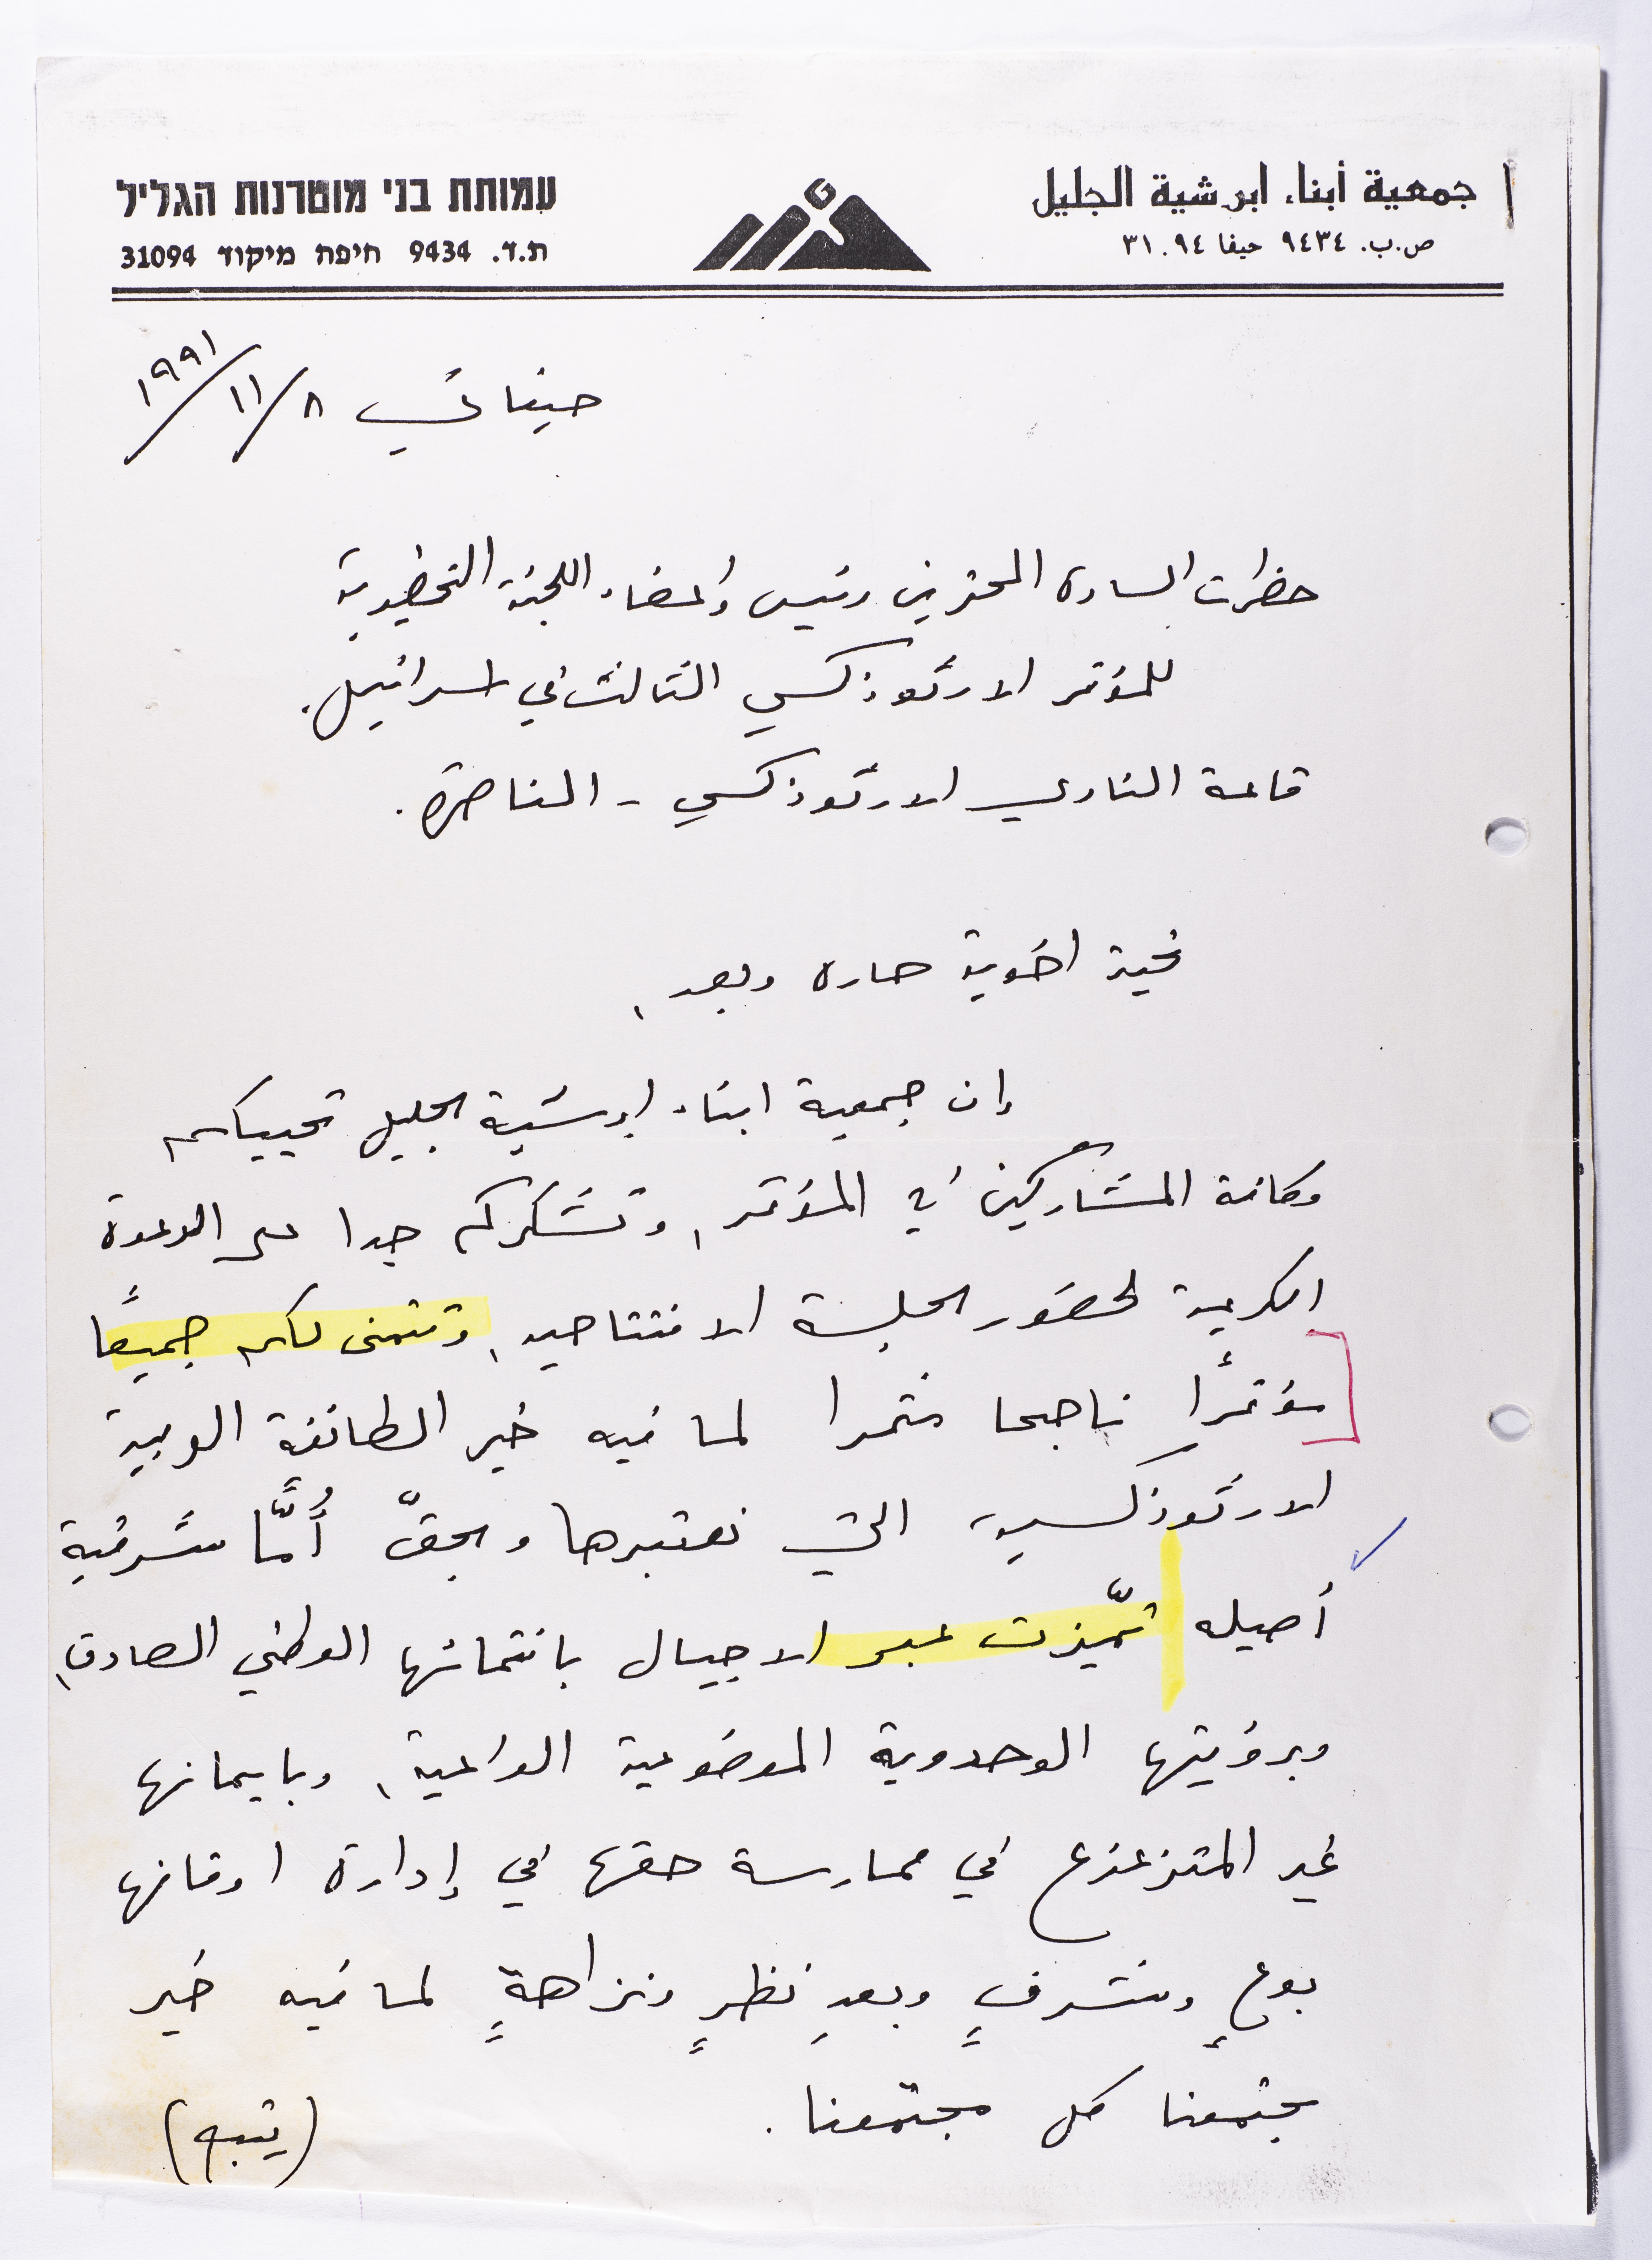 جمعية أبناء ابرشية الجليل
ص.ب. ٩٤٣٤ حيفا ٣١٠٩٤
עמותת בני מוטרנות הגליל
ת.ד. 9434 חיפה מיקוד 31094
حيفا في ٨/١١/١٩٩١
حضرات السادة المحترمين رئيس وأعضاء اللجنة التحضيرية
للمؤتمر الارثوذكسي الثالث في اسرائيل.
قاعة النادي الارثوذكسي - الناصرة.
تحية اخوية حارة وبعد،
إن جمعية ابناء ابرشية الجليل تحييكم
وكافة المشاركين في المؤتمر، وتشكركم جدا على الدعوة
الكريمة لحضور الجلسة الافتتاحية، وتتمنى لكم جميعًا
مؤتمرًا ناجحا مثمرا لما فيه خير الطائفة العربية
الارثوذكسية التي نعتبرها وبحقّ أُمًّا شرقية
أصيلة تميّزت عبر الاجيال بانتمائها الوطني الصادق،
وبرؤيتها الوحدوية الموضوعية الواعية، وبايمانها
غير المتزعزع في ممارسة حقها في إدارة اوقافها
بوعٍ وبشرفٍ وبعدِ نظرٍ ونزاهةٍ لما فيه خير
مجتمعنا كل مجتمعنا.
(يتبع)